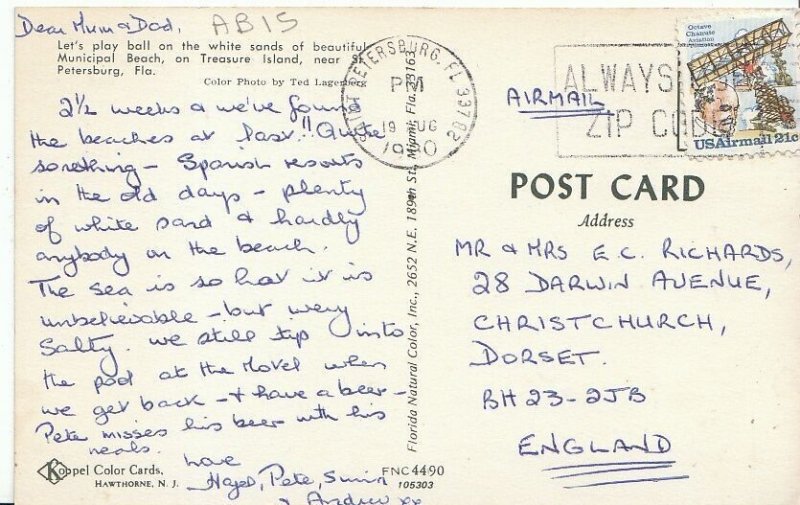 Dear Mum & Dad,
AB15
Let's play ball on the white sands of beautiful
Municipal Beach, on Treasure Island, near St.
Petersburg, Fla.
Color Photo by Ted Lagerberg
2½ weeks & we've found
the beaches at last!! Quite
something - Spanish resorts
in the old days - plenty
of white sand & hardly
anybody on the beach.
The sea is so hot it is
unbelievable - but very
salty. we still slip into
the pool at the Motel when
we get back - & have a beer -
Pete misses his beer with his
meals.
Love
Hazel, Pete,
& Andrew xx
Koppel Color Cards,
HAWTHORNE, N. J.
FNC4490
105303
Florida Natural Color, Inc., 2652 N.E. 189th St., Miami, Fla. 33163
SAINT PETERSBURG, FL 33702
PM
19 AUG
1980
ALWAYS
ZIP CODE
Octave
Chanute
Aviation
USAirmail 21c
AIRMAIL
POST CARD
Address
MR & MRS E.C. RICHARDS,
28 DARWIN AVENUE,
CHRISTCHURCH,
DORSET.
BH23-2JB
ENGLAND